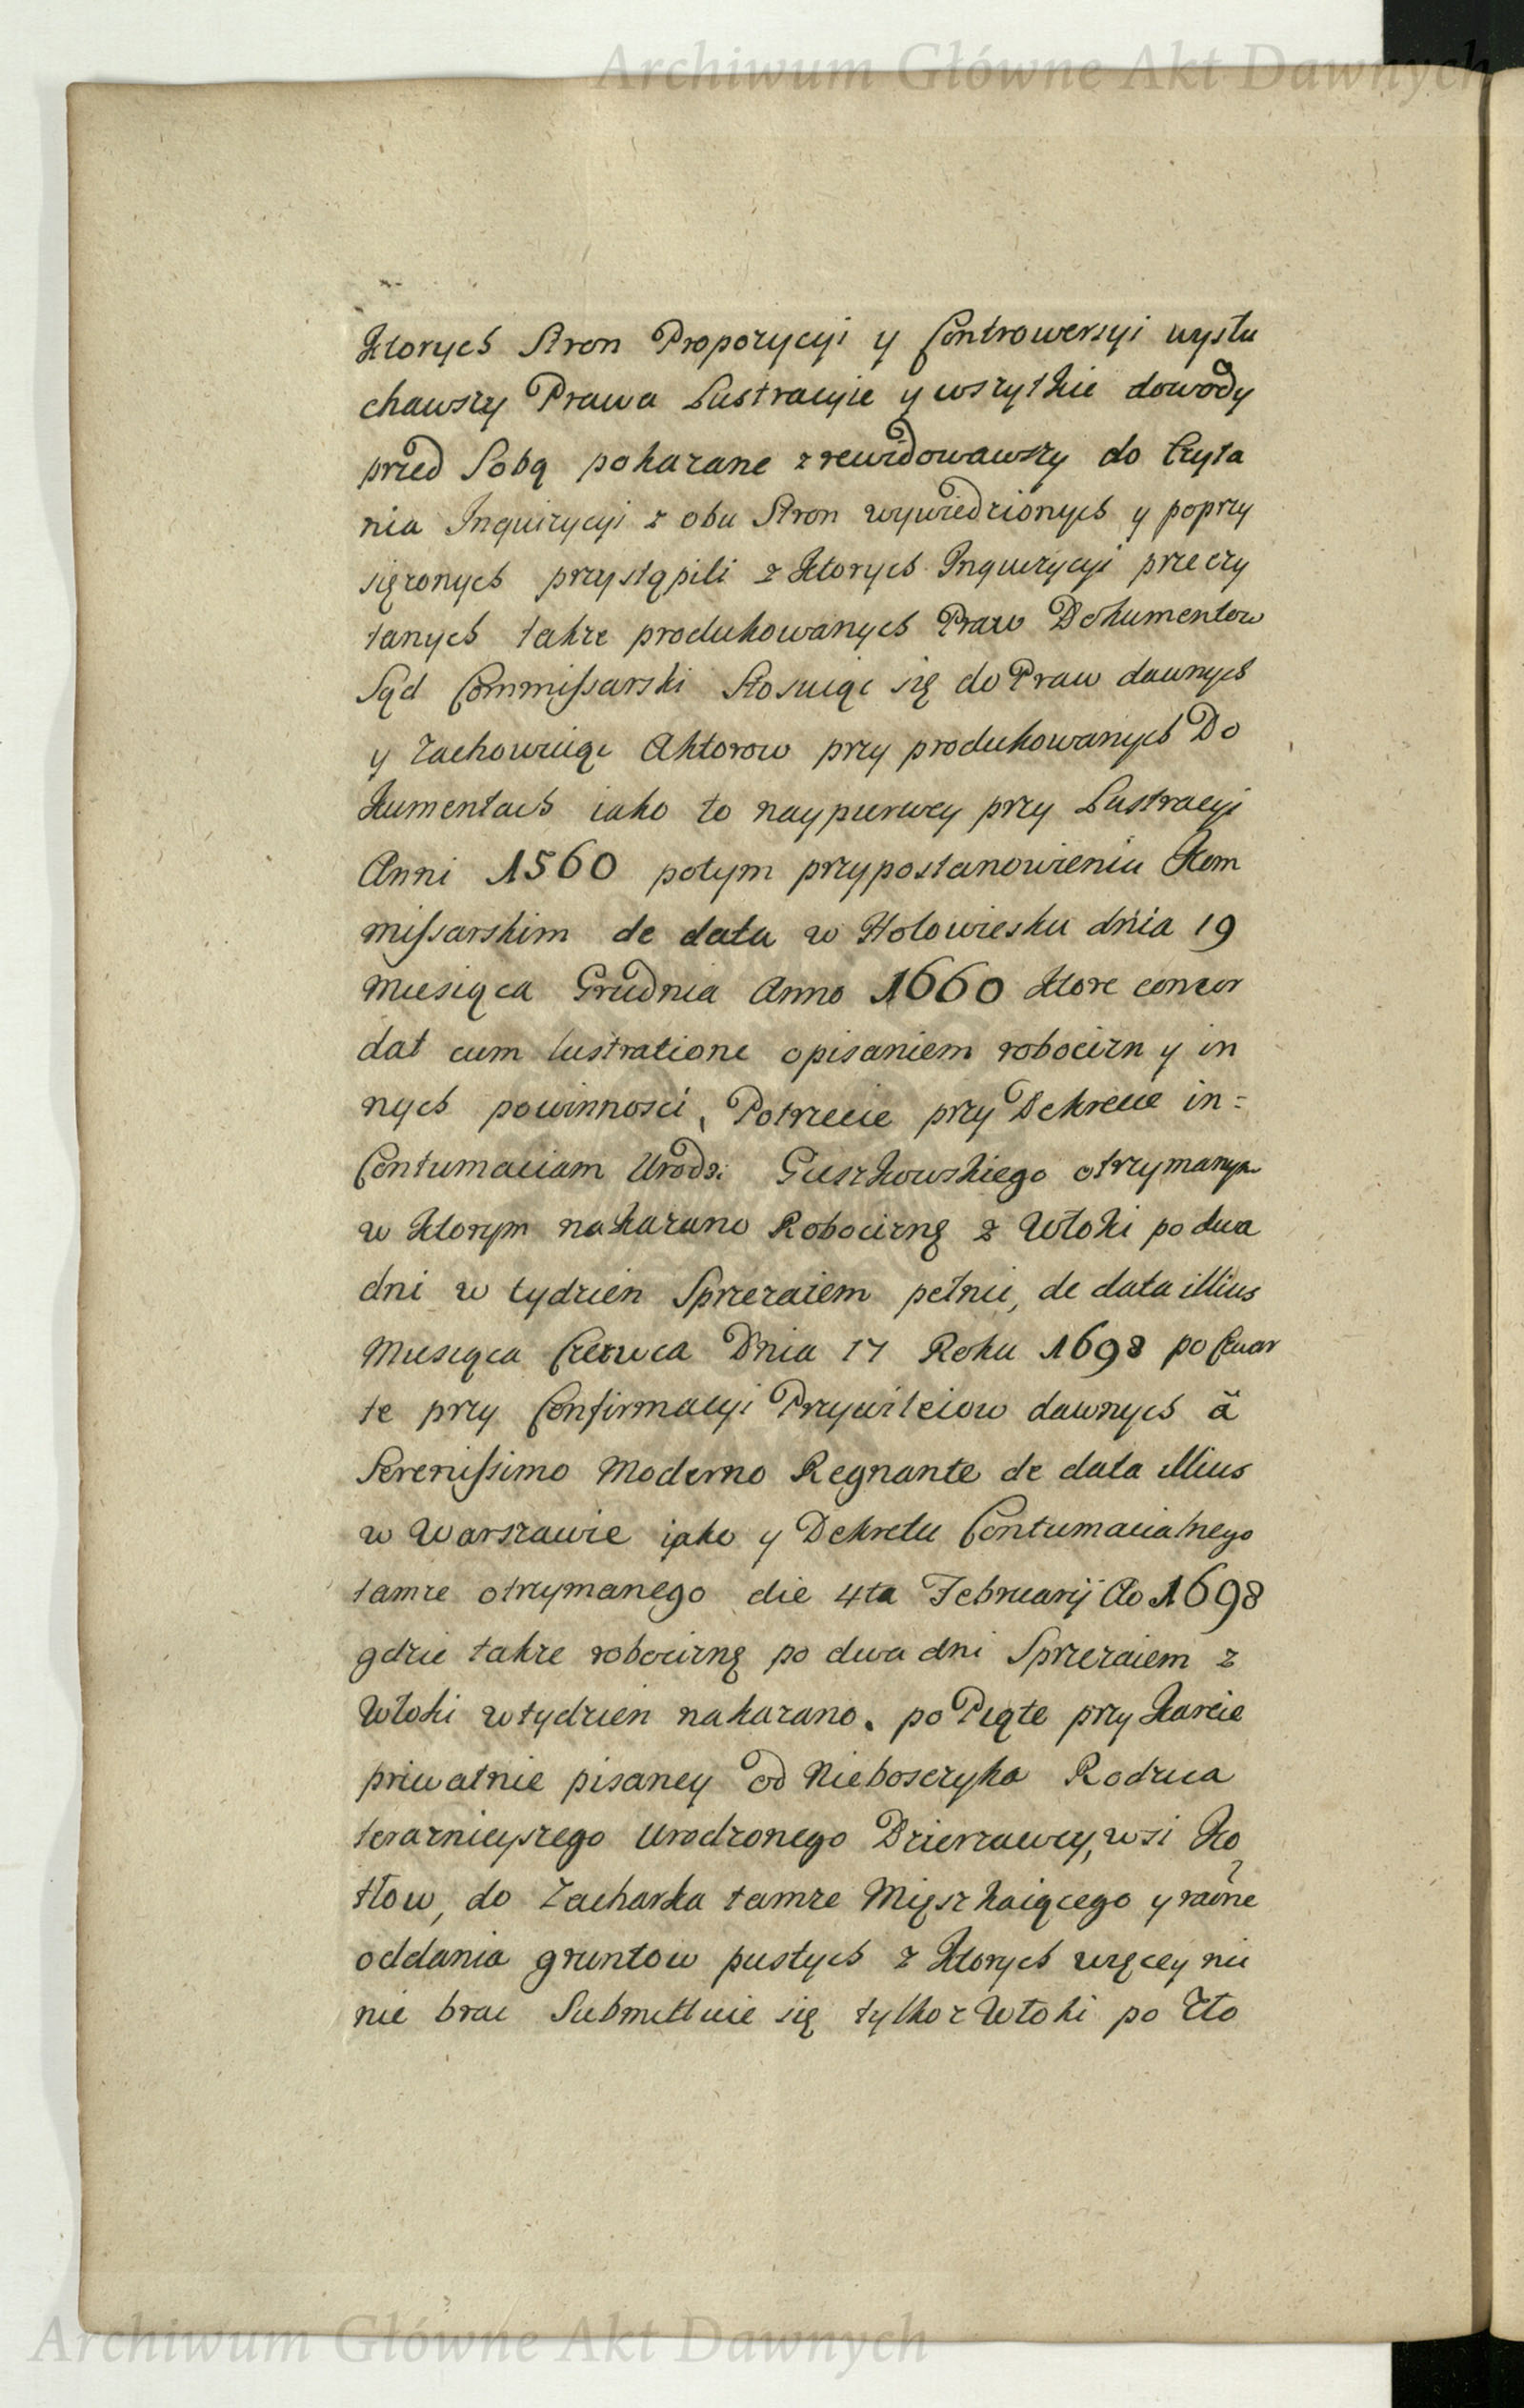 Archiwum Główne Akt Dawnych
Ktorych Stron Propozycyi y Controwersyi wysłu
chawszy Prawa Lustracyie y wszytkie dowody
przed Sobą pokazane zrewidowawszy do Czyta
nia Inquizycyi z obu Stron wywiedzionych y poprzy
siężonych przystąpili z Ktorych Inquizycyi przeczy
tanych także produkowanych Praw Dokumentow
Sąd Commissarski Stosuiąc się do Praw dawnych
y Zachowuiąc Aktorow przy produkowanych Do
Kumentach iako to naypierwey przy Lustracyi
Anni 1560 potym przypostanowieniu Kom
missarskim de data w Hołowiesku dnia 19
Miesiąca Grudnia Anno 1660 Ktore concor
dat cum lustratione opisaniem robocizn y in
nych powinnosci, Potrzecie przy Dekrecie in=
Contumaciam Urodz: Guszkowskiego otrzymanym
w Ktorym nakazano Robociznę z Włoki po dwa
dni w tydzien Sprzezaiem pełnic, de data illius
Miesiąca Czerwca Dnia 17 Roku 1698 po Czwar
te przy Confirmacyi Przywileiow dawnych ă
Serenissimo Moderno Regnante de data illius
w Warszawie iako y Dekretu Contumacialnego
tamże otrzymanego die 4ta Februarij Ao 1698
gdzie także robociznę po dwa dni Sprzezaiem z
Włoki w tydzien nakazano. po Piąte przy Karcie
priwatnie pisaney od Nieboszczyka Rodzica
teraznieyszego Urodzonego Dzierzawcy, wsi Ko
tłow, do Zacharka tamże Mięszkaiącego y rażne
oddania gruntow pustych z Ktorych więcey nic
nie brac Submittuie się tylko z Włoki po Zło
Archiwum Główne Akt Dawnych